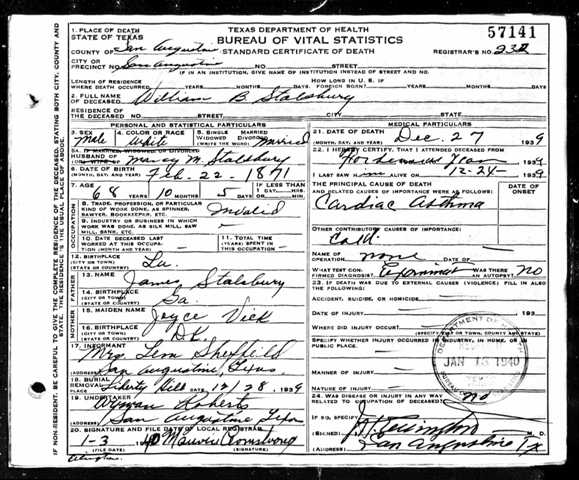 TEXAS DEPARTMENT OF HEALTH
BUREAU OF VITAL STATISTICS
STANDARD CERTIFICATE OF DEATH
57141
REGISTRAR'S NO. 232
1. PLACE OF DEATH
STATE OF TEXAS
COUNTY OF San Augustine
CITY OR
PRECINCT NO. San Augustine NO. STREET
IF IN AN INSTITUTION, GIVE NAME OF INSTITUTION INSTEAD OF STREET AND NO.
LENGTH OF RESIDENCE
WHERE DEATH OCCURRED YEARS MONTHS DAYS HOW LONG IN U. S. IF FOREIGN BORN? YEARS MONTHS DAYS
2. FULL NAME
OF DECEASED William B Stalsbury
RESIDENCE OF
THE DECEASED NO. STREET CITY STATE
PERSONAL AND STATISTICAL PARTICULARS
3. SEX 4. COLOR OR RACE 5. SINGLE MARRIED
WIDOWED DIVORCED
(WRITE THE WORD)
Male White Married
HUSBAND OF
Stalsbury
6. DATE OF BIRTH
(MONTH, DAY, AND YEAR) Feb. 22. 1871
7. AGE YEARS MONTHS DAYS IF LESS THAN 1 DAY
68 10 5 HOURS MIN
8. TRADE, PROFESSION, OR PARTICULAR
KIND OF WORK DONE, AS SPINNER,
SAWYER, BOOKKEEPER, ETC.
Invalid
9. INDUSTRY OR BUSINESS IN WHICH
WORK WAS DONE, AS SILK MILL, SAW
MILL, BANK, ETC.
10. DATE DECEASED LAST
WORKED AT THIS OCCUPATION
(MONTH AND YEAR)
11. TOTAL TIME
(YEARS) SPENT IN
THIS OCCUPATION
12. BIRTHPLACE
(CITY OR TOWN)
(STATE OR COUNTRY) La.
13. NAME James Stalsbury
14. BIRTHPLACE
(CITY OR TOWN)
(STATE OR COUNTRY) Ga.
15. MAIDEN NAME Joyce Vick
16. BIRTHPLACE
(CITY OR TOWN)
(STATE OR COUNTRY) D.K.
17. INFORMANT Mrs. Lem Sheffield
(ADDRESS) San Augustine, Texas
18. BURIAL
REMOVAL Liberty Hill 12/28 1939
19. UNDERTAKER Wyman Roberts
(ADDRESS) San Augustine Texas
20. SIGNATURE AND FILE DATE OF LOCAL REGISTRAR
1-3 40 Armstrong
(SIGNATURE)
MEDICAL PARTICULARS
21. DATE OF DEATH Dec. 27 1939
22. I HEREBY CERTIFY, THAT I ATTENDED DECEASED FROM
1939
I LAST SAW HIM ALIVE ON 12-24- 1939
THE PRINCIPAL CAUSE OF DEATH
AND RELATED CAUSES OF IMPORTANCE WERE AS FOLLOWS:
DATE OF
ONSET
Cardiac Asthma
OTHER CONTRIBUTORY CAUSES OF IMPORTANCE:
Cold.
NAME OF
OPERATION none DATE OF
WHAT TEST CONFIRMED
DIAGNOSIS? WAS THERE
AN AUTOPSY? No
23. IF DEATH WAS DUE TO EXTERNAL CAUSES (VIOLENCE) FILL IN ALSO
THE FOLLOWING:
ACCIDENT, SUICIDE, OR HOMICIDE
DATE OF INJURY 193
WHERE DID INJURY OCCUR?
(SPECIFY CITY OR TOWN, COUNTY, AND STATE)
SPECIFY WHETHER INJURY OCCURRED IN INDUSTRY, IN HOME, OR IN
PUBLIC PLACE.
MANNER OF INJURY
NATURE OF INJURY
24. WAS DISEASE OR INJURY IN ANY WAY
RELATED TO OCCUPATION OF DECEASED? No
IF SO, SPECIFY
(SIGNED) M. D.
(ADDRESS) San Augustine Tx
JAN 13 1940